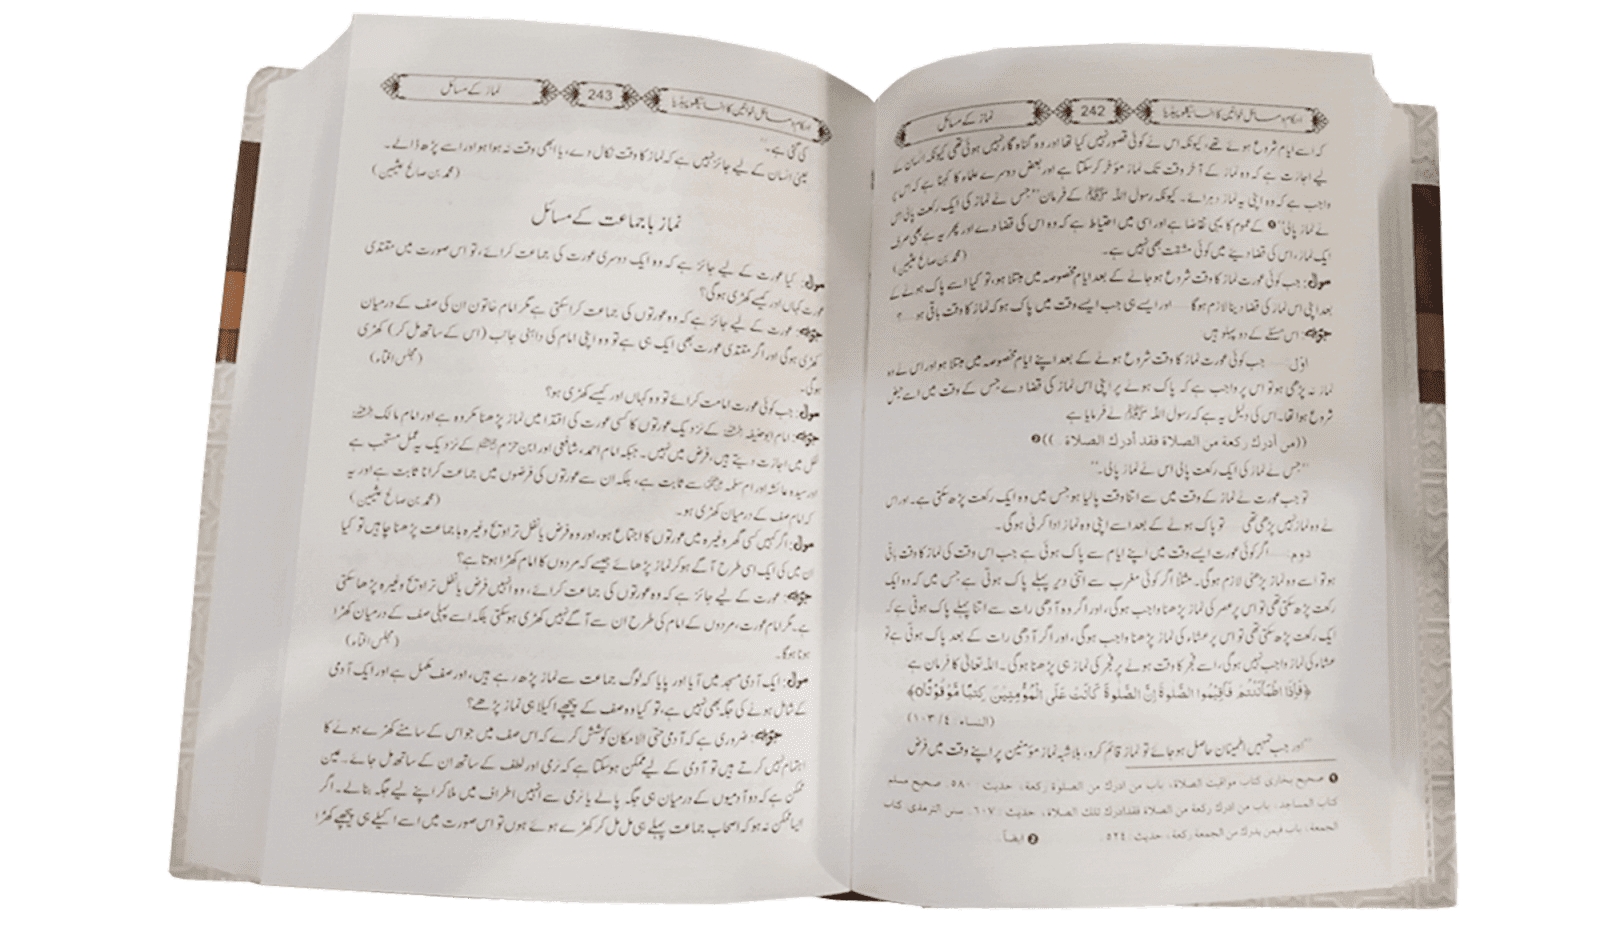 احکام و مسائل خواتین کا انسائیکلوپیڈیا 242 نماز کے مسائل
کہ اسے ایام شروع ہوئے تھے، کیونکہ اس نے کوئی قصور نہیں کیا تھا اور وہ گناہ گار نہیں ہوئی تھی کیونکہ انسان کے
لیے اجازت ہے کہ وہ نماز کے آخر وقت تک نماز مؤخر کرسکتا ہے اور بعض دوسرے علماء کا کہنا ہے کہ اس پر
واجب ہے کہ وہ اپنی یہ نماز دہرائے۔ کیونکہ رسول اللہ ﷺ کے فرمان "جس نے نماز کی ایک رکعت پالی اس
نے نماز پالی" ❶ کے عموم کا یہی تقاضا ہے اور اسی میں احتیاط ہے کہ وہ اس کی قضا دے اور پھر یہ ہے بھی صرف
ایک نماز، اس کی قضا دینے میں کوئی مشقت بھی نہیں ہے۔ (محمد بن صالح عثیمین)
سوال: جب کوئی عورت نماز کا وقت شروع ہوجانے کے بعد ایام مخصوصہ میں مبتلا ہو، تو کیا اسے پاک ہونے کے
بعد اپنی اس نماز کی قضا دینا لازم ہوگا اور ایسے ہی جب ایسے وقت میں پاک ہو کہ نماز کا وقت باقی ہو ؟
جواب: اس مسئلے کے دو پہلو ہیں
اوّل جب کوئی عورت نماز کا وقت شروع ہونے کے بعد اپنے ایام مخصوصہ میں مبتلا ہو اور اس نے وہ
نماز نہ پڑھی ہو تو اس پر واجب ہے کہ پاک ہونے پر اپنی اس نماز کی قضا دے جس کے وقت میں اسے حیض
شروع ہوا تھا۔ اس کی دلیل یہ ہے کہ رسول اللہ ﷺ نے فرمایا ہے
((من أدرك ركعة من الصلاة فقد أدرك الصلاة .)) ❷
"جس نے نماز کی ایک رکعت پالی اس نے نماز پالی۔"
تو جب عورت نے نماز کے وقت میں سے اتنا وقت پالیا ہو جس میں وہ ایک رکعت پڑھ سکتی ہے۔ اور اس
نے وہ نماز نہیں پڑھی تھی تو پاک ہونے کے بعد اسے اپنی وہ نماز ادا کرنی ہوگی۔
دوم اگر کوئی عورت ایسے وقت میں اپنے ایام سے پاک ہوئی ہے جب اس وقت کی نماز کا وقت باقی
ہو تو اسے وہ نماز پڑھنی لازم ہوگی۔ مثلاً اگر کوئی مغرب سے اتنی دیر پہلے پاک ہوتی ہے جس میں کہ وہ ایک
رکعت پڑھ سکتی تھی تو اس پر عصر کی نماز پڑھنا واجب ہوگی، اور اگر وہ آدھی رات سے اتنا پہلے پاک ہوئی ہے کہ
ایک رکعت پڑھ سکتی تھی تو اس پر عشاء کی نماز پڑھنا واجب ہوگی، اور اگر آدھی رات کے بعد پاک ہوئی ہے تو
عشاء کی نماز واجب نہیں ہوگی، اسے فجر کا وقت ہونے پر فجر کی نماز ہی پڑھنا ہوگی۔ اللہ تعالیٰ کا فرمان ہے
﴿فَإِذَا اطْمَأْنَنتُمْ فَأَقِيمُوا الصَّلَوٰةَ إِنَّ الصَّلَوٰةَ كَانَتْ عَلَى الْمُؤْمِنِينَ كِتَٰبًا مَّوْقُوتًا﴾
(النساء: ٤/ ١٠٣)
"اور جب تمہیں اطمینان حاصل ہوجائے تو نماز قائم کرو، بلاشبہ نماز مؤمنین پر اپنے وقت میں فرض
❶ صحیح بخاری کتاب مواقیت الصلاة، باب من ادرك من الصلوة ركعة، حديث: ٥٨٠. صحیح مسلم
كتاب المساجد، باب من ادرك ركعة من الصلاة فقد ادرك تلك الصلاة، حديث: ٦٠٧. سنن الترمذی، كتاب
الجمعة، باب فيمن يدرك من الجمعة ركعة، حديث: ٥٢٤. ❷ ایضاً۔
احکام و مسائل خواتین کا انسائیکلوپیڈیا 243 نماز کے مسائل
کی گئی ہے۔"
یعنی انسان کے لیے جائز نہیں ہے کہ نماز کا وقت نکال دے، یا ابھی وقت نہ ہوا ہو اور اسے پڑھ ڈالے۔
(محمد بن صالح عثیمین)
نماز باجماعت کے مسائل
سوال: کیا عورت کے لیے جائز ہے کہ وہ ایک دوسری عورت کی جماعت کرائے، تو اس صورت میں مقتدی
عورت کہاں اور کیسے کھڑی ہوگی؟
جواب: عورت کے لیے جائز ہے کہ وہ عورتوں کی جماعت کراسکتی ہے مگر امام خاتون ان کی صف کے درمیان
کھڑی ہوگی اور اگر مقتدی عورت بھی ایک ہی ہے تو وہ اپنی امام کی داہنی جانب (اس کے ساتھ مل کر) کھڑی
ہوگی۔ (مجلس افتاء)
سوال: جب کوئی عورت امامت کرائے تو وہ کہاں اور کیسے کھڑی ہو؟
جواب: امام ابوحنیفہ کے نزدیک عورتوں کا کسی عورت کی اقتدا میں نماز پڑھنا مکروہ ہے اور امام مالک
نفل میں اجازت دیتے ہیں، فرض میں نہیں۔ جبکہ امام احمد، شافعی اور ابن حزم کے نزدیک یہ عمل مستحب ہے
اور سیدہ عائشہ اور ام سلمہ سے ثابت ہے، بلکہ ان سے عورتوں کی فرضوں میں جماعت کرانا ثابت ہے اور یہ
کہ امام صف کے درمیان کھڑی ہو۔ (محمد بن صالح عثیمین)
سوال: اگر کہیں کسی گھر وغیرہ میں عورتوں کا اجتماع ہو، اور وہ فرض یا نفل تراویح وغیرہ باجماعت پڑھنا چاہیں تو کیا
ان میں کی ایک اسی طرح آگے ہو کر نماز پڑھائے جیسے کہ مردوں کا امام کھڑا ہوتا ہے؟
جواب: عورت کے لیے جائز ہے کہ وہ عورتوں کی جماعت کرائے، وہ انہیں فرض یا نفل تراویح وغیرہ پڑھا سکتی
ہے۔ مگر امام عورت، مردوں کے امام کی طرح ان سے آگے نہیں کھڑی ہوسکتی بلکہ اسے پہلی صف کے درمیان کھڑا
ہونا ہوگا۔ (مجلس افتاء)
سوال: ایک آدمی مسجد میں آیا اور پایا کہ لوگ جماعت سے نماز پڑھ رہے ہیں، اور صف مکمل ہے اور ایک آدمی
کے شامل ہونے کی جگہ بھی نہیں ہے، تو کیا وہ صف کے پیچھے اکیلا ہی نماز پڑھے؟
جواب: ضروری ہے کہ آدمی حتی الامکان کوشش کرے کہ اس صف میں جو اس کے سامنے کھڑے ہونے کا
اہتمام نہیں کرتے ہیں تو آدمی کے لیے ممکن ہوسکتا ہے کہ نرمی اور لطف کے ساتھ ان کے ساتھ مل جائے۔ عین
ممکن ہے کہ دو آدمیوں کے درمیان ہی جگہ پالے یا نرمی سے انہیں اطراف میں ملا کر اپنے لیے جگہ بنالے۔ اگر
ایسا ممکن نہ ہو کہ اصحاب جماعت پہلے ہی مل مل کر کھڑے ہوئے ہوں تو اس صورت میں اسے اکیلے ہی پیچھے کھڑا